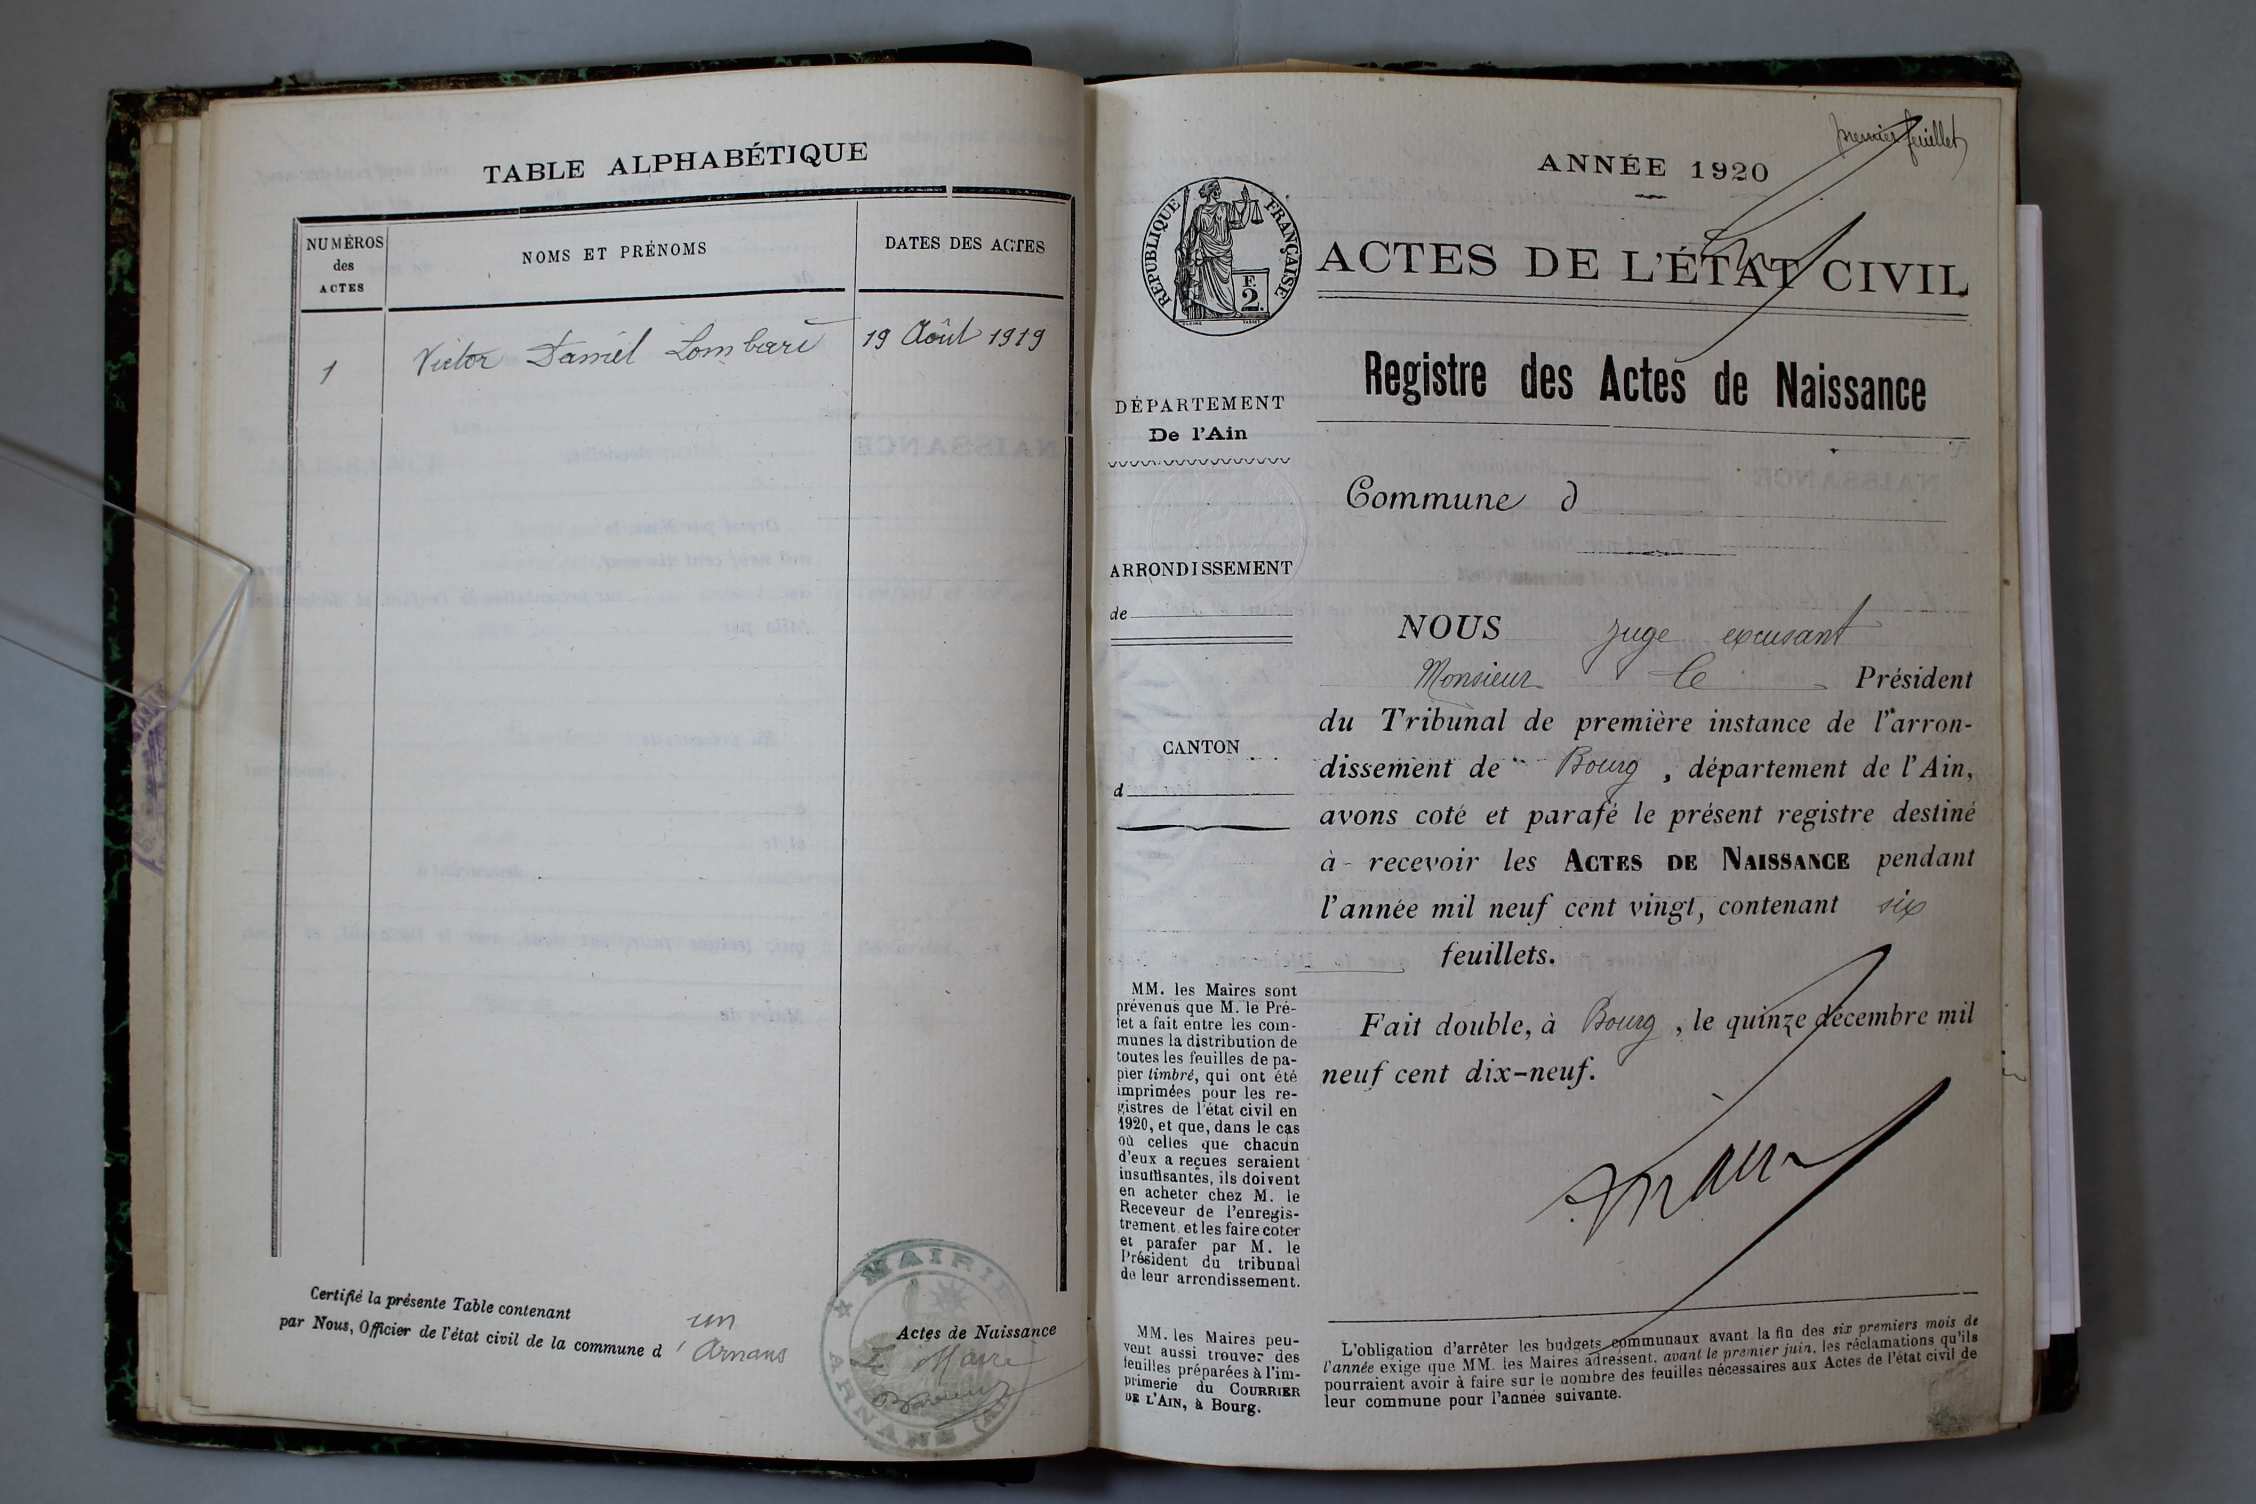 TABLE ALPHABÉTIQUE
NUMÉROS
des
ACTES
NOMS ET PRÉNOMS
DATES DES ACTES
1
Victor Daniel Lombard
19 Août 1919
Certifié la présente Table contenant
un
Actes de Naissance
par Nous, Officier de l'état civil de la commune d'Arnans
Le Maire
MAIRIE
ARNANS (AIN)
premier feuillet
ANNÉE 1920
RÉPUBLIQUE FRANÇAISE
F.
2.
ACTES DE L'ÉTAT CIVIL
Registre des Actes de Naissance
DÉPARTEMENT
De l'Ain
ARRONDISSEMENT
de
CANTON
d
Commune d
NOUS juge excusant
Monsieur le Président
du Tribunal de première instance de l'arron-
dissement de Bourg, département de l'Ain,
avons coté et parafé le présent registre destiné
à recevoir les ACTES DE NAISSANCE pendant
l'année mil neuf cent vingt, contenant six
feuillets.
Fait double, à Bourg, le quinze décembre mil
neuf cent dix-neuf.
MM. les Maires sont
prévenus que M. le Pré-
fet a fait entre les com-
munes la distribution de
toutes les feuilles de pa-
pier timbré, qui ont été
imprimées pour les re-
gistres de l'état civil en
1920, et que, dans le cas
où celles que chacun
d'eux a reçues seraient
insuffisantes, ils doivent
en acheter chez M. le
Receveur de l'enregis-
trement et les faire coter
et parafer par M. le
Président du tribunal
de leur arrondissement.
MM. les Maires peu-
vent aussi trouver des
feuilles préparées à l'im-
primerie du COURRIER
DE L'AIN, à Bourg.
L'obligation d'arrêter les budgets communaux avant la fin des six premiers mois de
l'année exige que MM. les Maires adressent, avant le premier juin, les réclamations qu'ils
pourraient avoir à faire sur le nombre des feuilles nécessaires aux Actes de l'état civil de
leur commune pour l'année suivante.